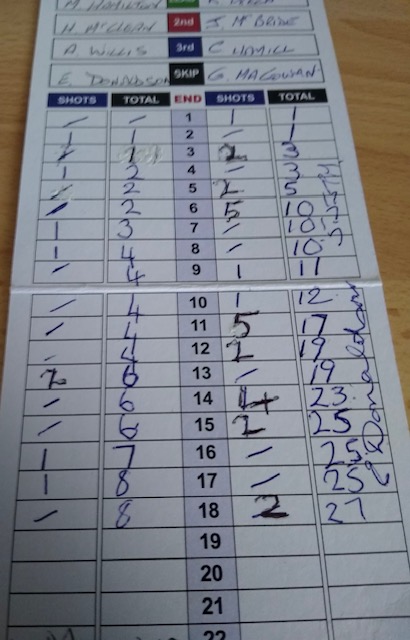 M. HAMILTON
H. McCLEAN 2nd J. McBRIDE
A. WILLIS 3rd C HAMILL
E. DONALDSON SKIP G. MAGOWAN
SHOTS TOTAL END SHOTS TOTAL
- - 1 1 1
1 1 2 - 1
- 1 3 2 3
1 2 4 - 3
- 2 5 2 5
- 2 6 5 10
1 3 7 - 10
1 4 8 - 10
- 4 9 1 11
- 4 10 1 12
- 4 11 5 17
- 4 12 2 19
2 6 13 - 19
- 6 14 4 23
- 6 15 2 25
1 7 16 - 25
1 8 17 - 25
- 8 18 2 27
19
20
21
22
E Donaldson